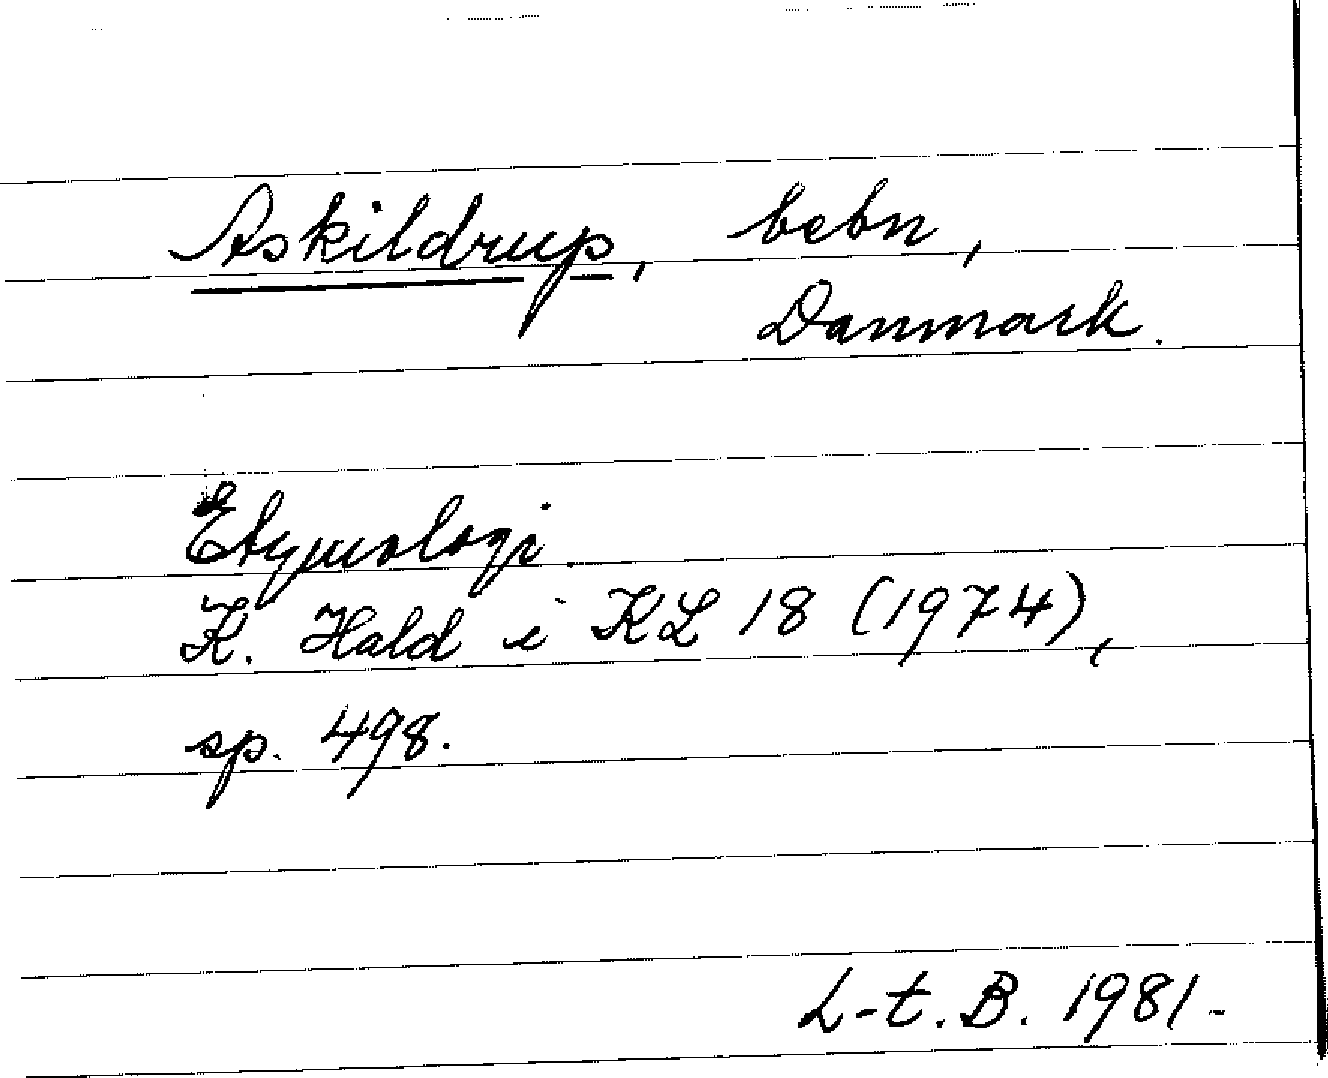 Askildrup, bebn,
Danmark.
Etymologi
K. Hald i KL 18 (1974),
sp. 498.
L-t. B. 1981-